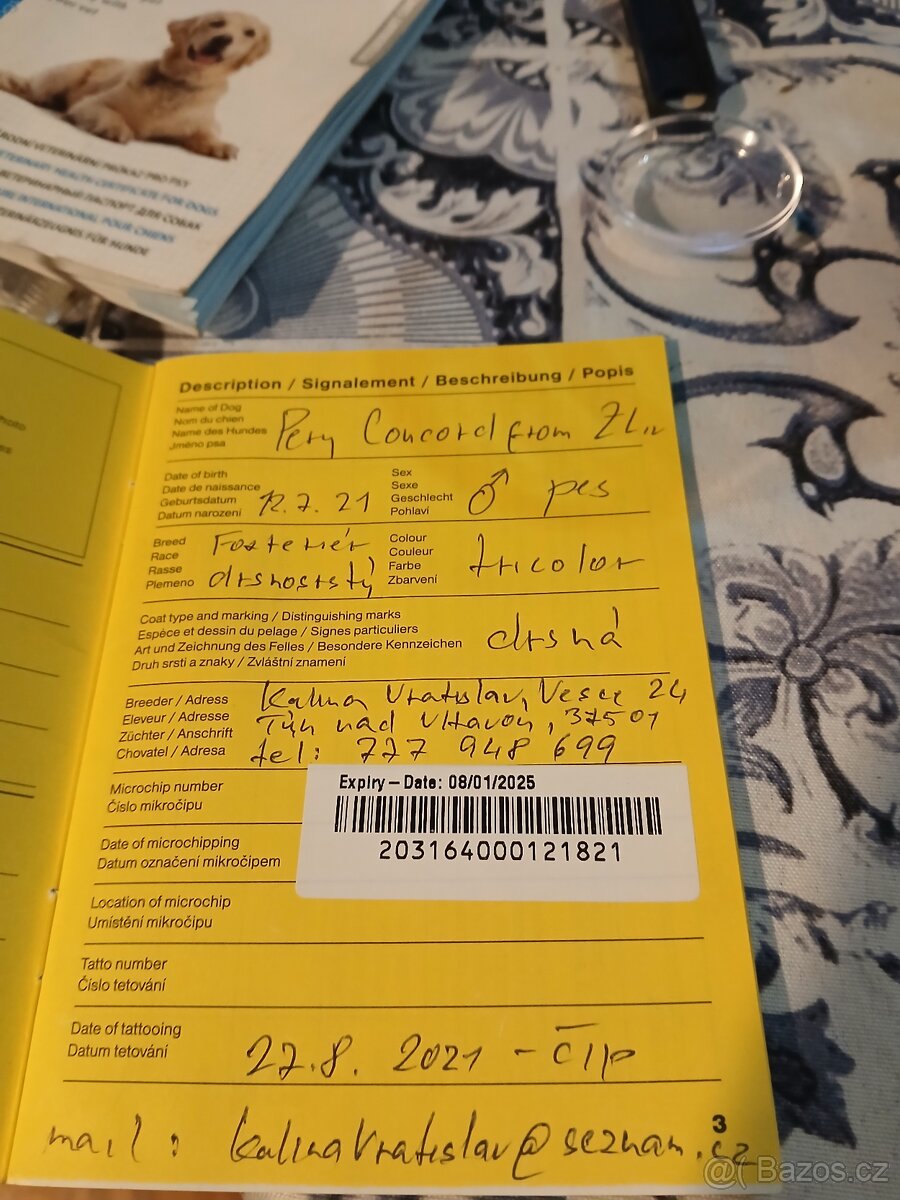 RODNÍ VETERINÁRNÍ PRŮKAZ PRO PSY
VETERINARY HEALTH CERTIFICATE FOR DOGS
ВЕТЕРИНАРНЫЙ ПАСПОРТ ДЛЯ СОБАК
INTERNATIONAL POUR CHIENS
FÜR HUNDE
Description / Signalement / Beschreibung / Popis
Name of Dog
Nom du chien
Name des Hundes
Jméno psa
Pery Concord from Zlin
Date of birth
Date de naissance
Geburtsdatum
Datum narození
12.7.21
Sex
Sexe
Geschlecht
Pohlaví
♂ pes
Breed
Race
Rasse
Plemeno
Foxteriér
drsnosrstý
Colour
Couleur
Farbe
Zbarvení
tricolor
Coat type and marking / Distinguishing marks
Espèce et dessin du pelage / Signes particuliers
Art und Zeichnung des Felles / Besondere Kennzeichen
Druh srsti a znaky / Zvláštní znamení
drsná
Breeder / Adress
Eleveur / Adresse
Züchter / Anschrift
Chovatel / Adresa
Kalina Vratislav, Vesce 24
Týn nad Vltavou, 37501
tel: 777 948 699
Microchip number
Číslo mikročipu
Expiry-Date: 08/01/2025
203164000121821
Date of microchipping
Datum označení mikročipem
Location of microchip
Umístění mikročipu
Tatto number
Číslo tetování
Date of tattooing
Datum tetování
27.8. 2021 - čip
3
mail: kalinaVratislav@seznam.cz
@ Bazos.cz